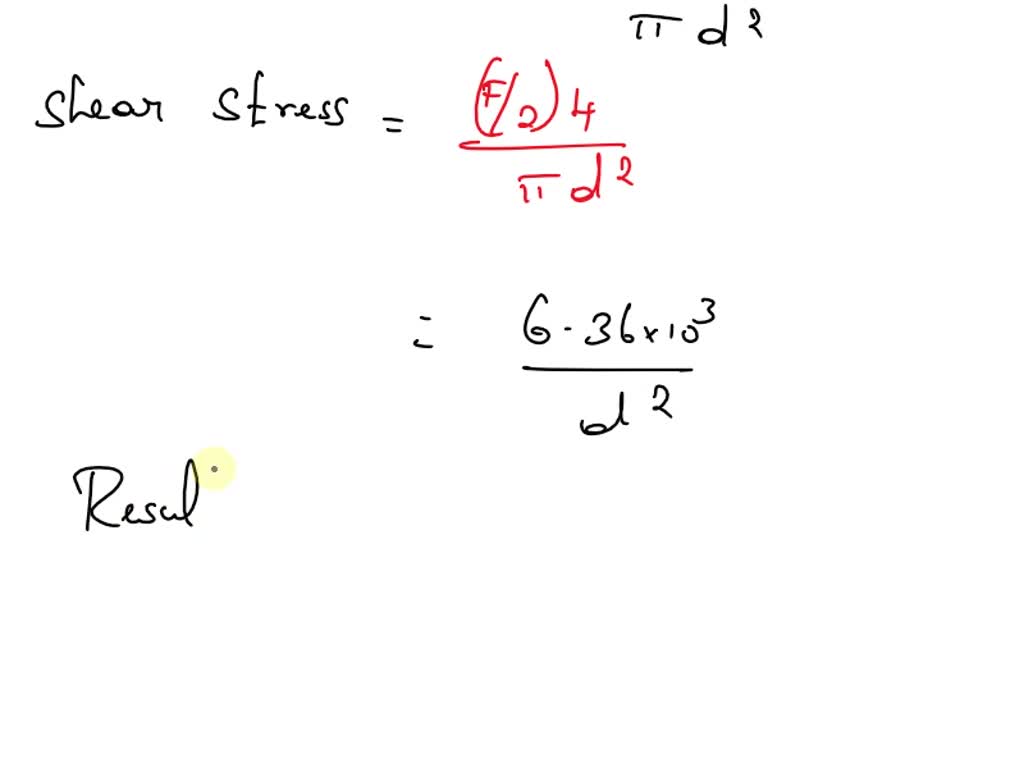 π d²
Shear stress = (F/2) 4
π d²
= 6.36×10³
d²
Resul